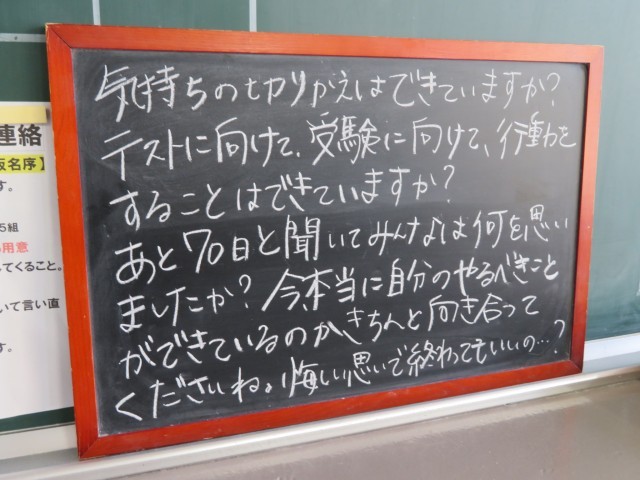 気持ちの切りかえはできていますか?
テストに向けて、受験に向けて、行動を
することはできていますか?
あと70日と聞いてみんなは何を思い
ましたか? 今、本当に自分のやるべきこと
ができているのかきちんと向き合って
くださいね。悔しい思いで終わってもいいの…?
連絡
名序】
す。
5組
用意
してくること。
いて言い直
す。